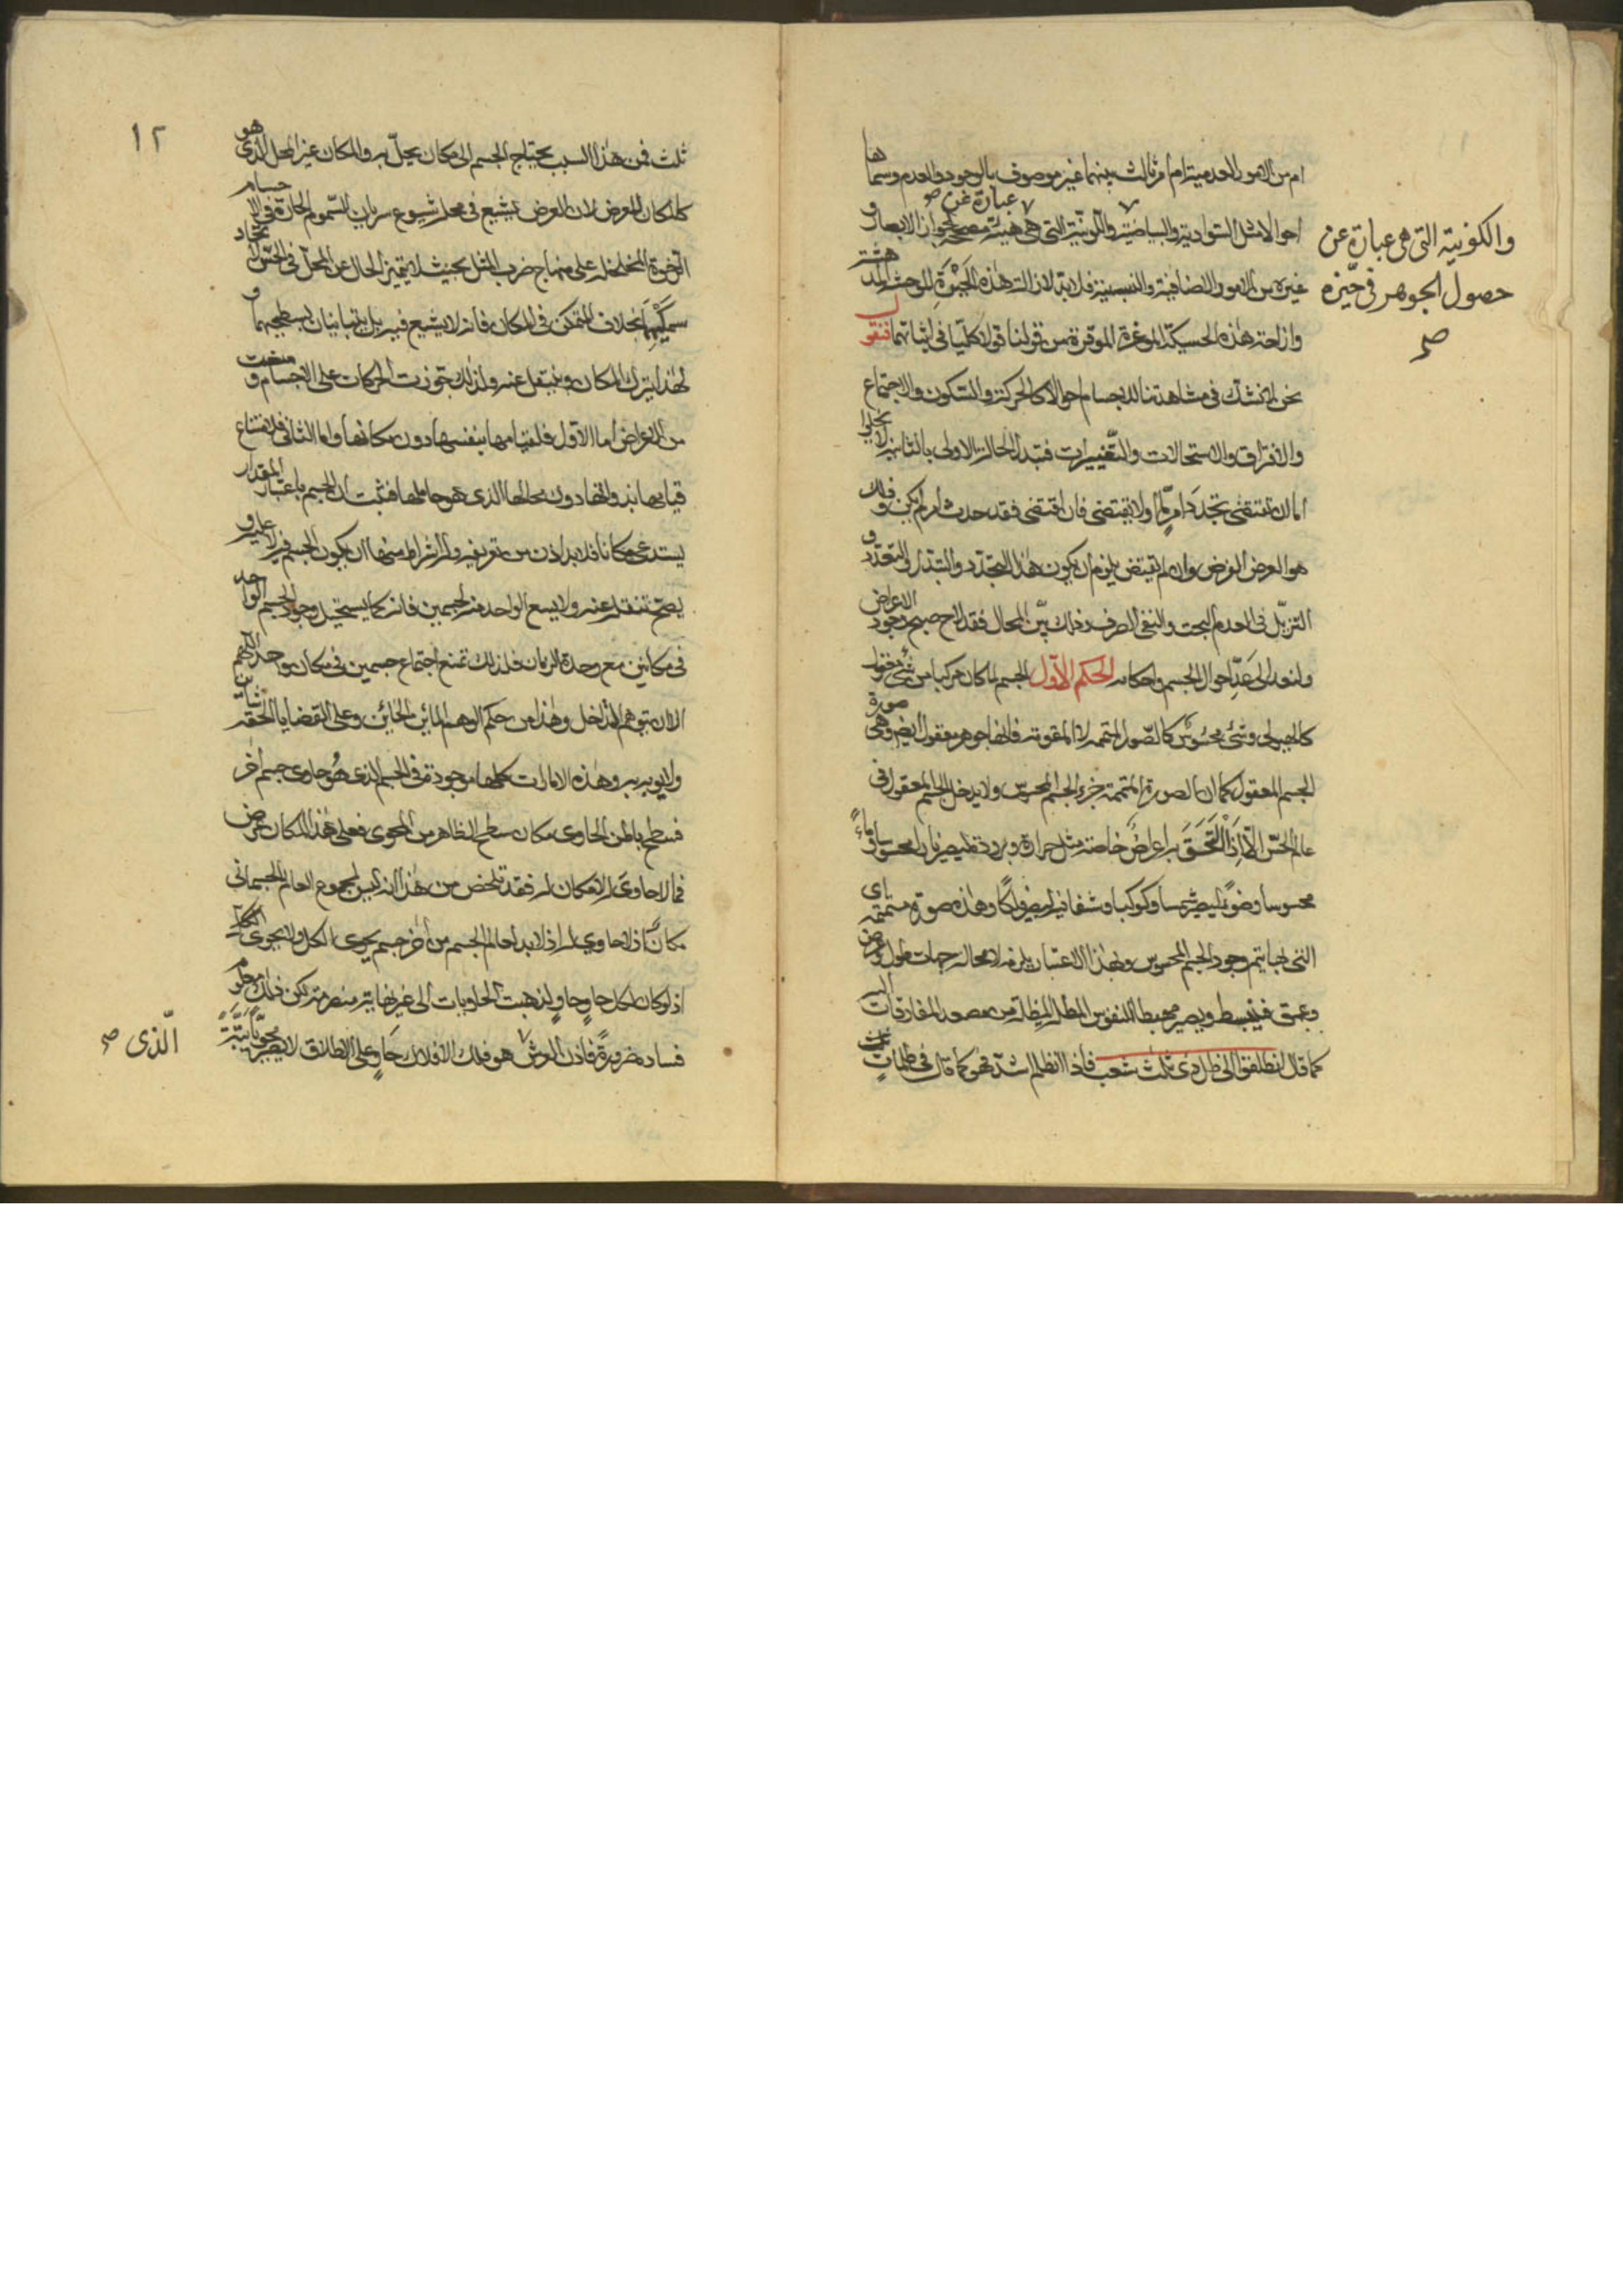 ام من الامور العدمية ام امر ثالث بينهما غير موصوف بالوجود والعدم وسماها
عبارة عن صح
احوالا مثل السوادية والبياضية واللونية التي هي هيئة مصححة لجواز الابصار و
والكونية التى هى عبارة عن
حصول الجوهر فى حيّزه
صح
غيره من الامور الاضافية والنسبية فلا بد لازالة هذه الحيرة الموحشة المدهشة
وازاحة هذه الحسيكة الموغرة الموقرة من قولنا قولا كليا في اثباتها فنقول
نحن لم نشك في مشاهدتنا للاجسام احوالا كالحركة والسكون والاجتماع
والافتراق والاستحالات والتغييرات فتبدل الحالة الاولى بالثانية لا يخلوا
اما ان تقتضي تجدد امر ما او لا يقتضي فان اقتضى فقد حدث امر لم يكن وذلك
هو العرض الغرض وان لم يقتض يلزم ان يكون هذا التجدد والتبدل والتعدد و
التزيّل فى العدم البحت والنفي الصرف وذلك بيّن المحال فقد لاح صبح وجود الاعراض
ولنعد الى عدّ احوال الجسم واحكامه الحكم الاول الجسم لما كان مركبا من شىء معقول
كالهيولى وشىء محسوس كالصور المتممة لا المقومة فانها جوهر معقول ايضا وهى صورة
الجسم المعقول كما ان الصورة المتممة جزء الجسم المحسوس ولا يدخل الجسم المعقول فى
عالم الحسّ الّا اذا الْتَحَقَ به اعراضٌ خاصة مثل حرارة وبرودة فيصير نارا محسوسا وماءً
محسوسا وضوءً ليصير شمسا وكوكبا وشفافية ليصير فلكا وهذه صورة متممة اى
التى بها يتم وجود الجسم المحسوس وبهذا الاعتبار يلزمه لا محالة جهات طول وعرض
وعمق فينبسط ويصير مهبطا للنفوس المظلة من مصعد المفارقات اليه
كما قال انطلقوا الى ظل ذى ثلث شعب فاذا انظلم اشد فهو كما قال فى ظلماتٍ
١٢
ثلث فمن هذا السبب يحتاج الجسم الى مكان يحلّ به والمكان غير المحل الذى هو
كالمكان للعرض لان العرض يشيع فى محله شيوع سريان السموم الحارة فى الاجسام
الرخوة المخلخلة على منهاج ضرب المثل بحيث لا يتميز الحال عن المحل فى الحسّ لاتحاد
سمكيهما بخلاف المتمكن فى المكان فانه لا يشيع فيه بل يتباينان بسطحيهما و
لهذا يترك المكان وينتقل عنه ولذلك جوزت الحركات على الاجسام ومنعت
من الاعراض اما الاول فلقيامها بنفسها دون مكانها واما الثانى فلامتناع
قيامها بذواتها دون محالها الذى هو حاملها فثبت ان الجسم باعتبار المقدار
يستدعى مكانا فلا بد اذن من تعريفه وله شرائط منها ان يكون الجسم فيه لا عليه و
يصح تنقله عنه ولا يسع الواحد منه لجسمين فانه كما يستحيل وجود الجسم الواحد
فى مكانين مع وحدة الزمان فلذلك تمنع اجتماع جسمين فى مكان واحد اللهم
الا ان يتوهم التداخل وهذا من حكم الوهم المائن الخائن وعلى القضايا الحقة
ولا يوبه به وهذه الامارات كلها موجودة فى الجسم الذى هُو حاوى جسم آخر
فسطح باطن الحاوى مكان سطح الظاهر من المحوى فعلى هذا المكان عرض
فما لا حاوى له لا مكان له فقد تلخص من هذا انه ليس لمجموع العالم الجسمانى
مكانٌ اذ لا حاوى له اذ لا بد لعالم الجسم من آخر جسم يحوى الكل ولا يحوى الكل
اذ لو كان لكل حاوٍ حاوٍ لذهبت الحاويات الى غير نهاية منصرمة لكن ذلك معلوم
فساده ضرورةً فاذن العرش هو فلك الافلاك حاوٍ على الاطلاق لا يصير محويًّا
الّذى صح